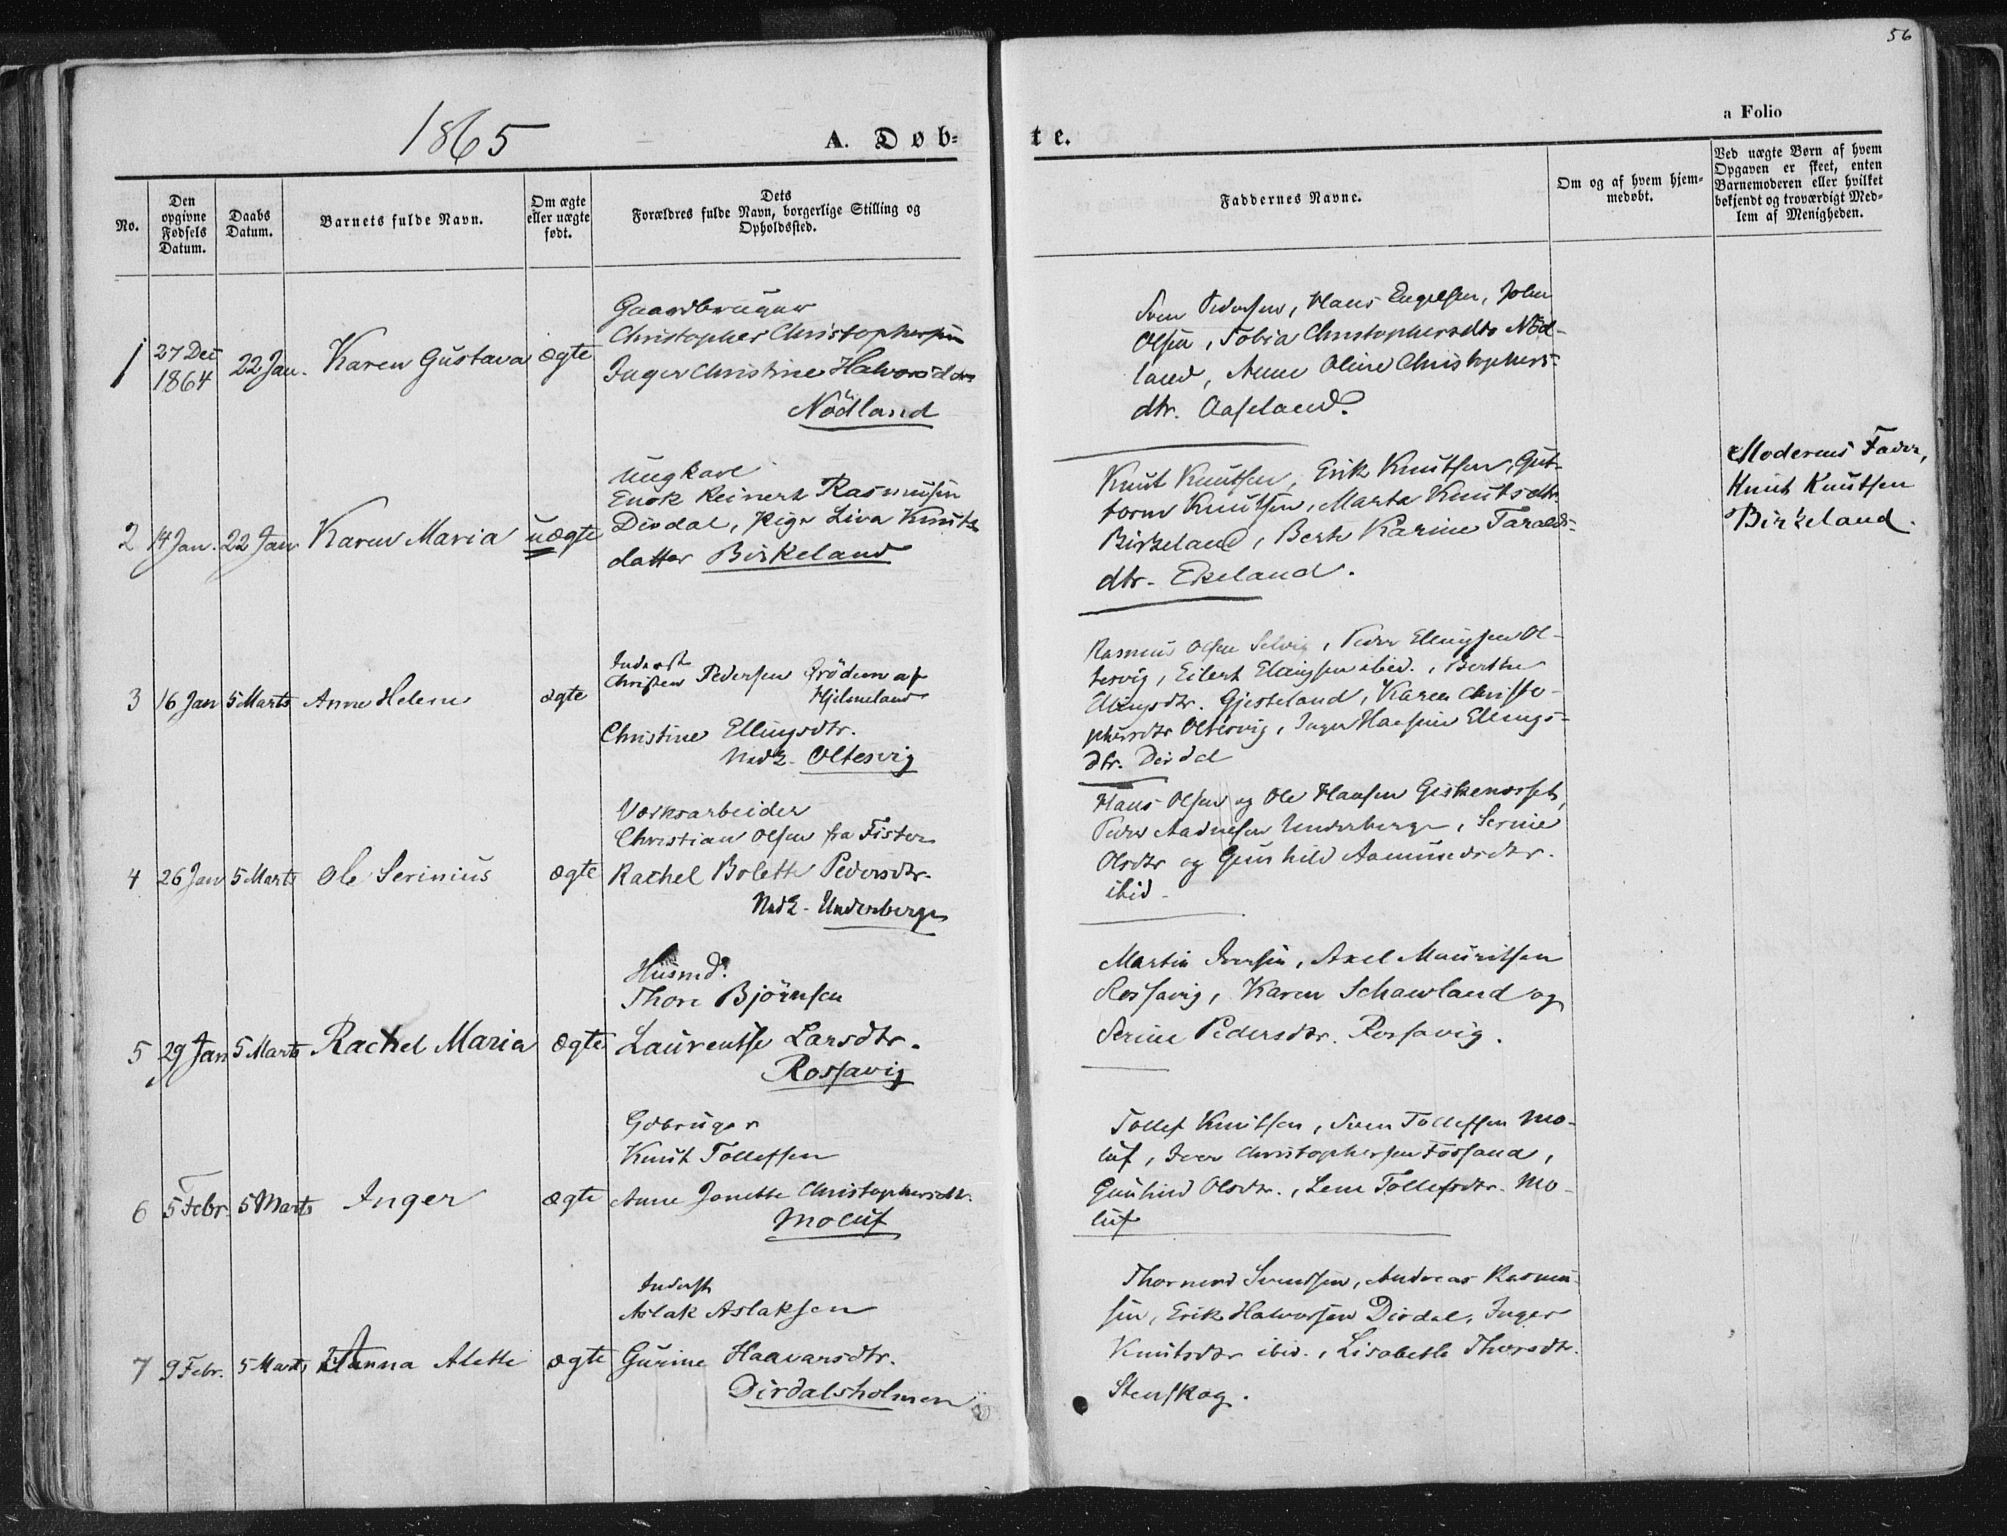 56
1865
A. Døb=
te.
a Folio
No.
Den
opgivne
Fødsels
Datum.
Daabs
Datum.
Barnets fulde Navn.
Om ægte
eller uægte
født.
Dets
Forældres fulde Navn, borgerlige Stilling og
Opholdssted.
Faddernes Navne.
Om og af hvem hjem-
medøbt.
Ved uægte Børn af hvem
Opgaven er skeet, enten
Barnemoderen eller hvilket
bekjendt og troværdigt Med-
lem af Menigheden.
1
27 Dec
1864
22 Jan.
Karen Gustava
ægte
Gaardbruger
Christopher Christophersen
Inger Christine Halvorsdtr
Nödland
Sven Pedersen, Hans Engelsen, John
Olsen, Tobia Christophersdtr Nöd-
land, Anne Oline Christophers-
dtr. Aaseland.
2
14 Jan.
22 Jan
Karen Maria
uægte
Ungkarl
Enok Reinert Rasmusen
Dirdal, Pige Liva Knuts
datter Birkeland
Knut Knutsen, Erik Knutsen, Gut-
torm Knutsen, Marta Knutsdtr.
Birkeland, Berte Karine Taralds-
dtr. Ekeland.
Moderens Fader,
Knut Knutsen
Birkeland.
3
16 Jan
5 Marts
Anne Helene
ægte
Inderst
Christen Pedersen Grödem af
Hjelmeland
Christine Ellingsdtr.
Oltesvig
Rasmus Olsen Selvig, Peder Ellingsen Ol-
tesvig, Eilert Ellingsen ibid., Berthe
Ellingsdtr. Gjesteland, Karen Christo-
phersdtr Oltesvig, Inger Hansine Ellings-
dtr. Dirdal
4
26 Jan
5 Marts
Ole Serinius
ægte
Værksarbeider
Christian Olsen fra Fister
Rachel Bolette Pedersdtr.
Underberge
Hans Olsen og Ole Hansen Eiskenæsset,
Peder Aadnesen Underberge, Serine
Olsdtr og Gunhild Aamundsdtr.
ibid.
5
29 Jan
5 Marts
Rachel Maria
ægte
Husmd.
Thore Björnsen
Laurentse Larsdtr.
Rossavig
Martin Iversen, Axel Mauritsen
Rossavig, Karen Schawland og
Serine Pedersdtr. Rossavig.
6
5 Febr.
5 Marts
Inger
ægte
Gdbruger
Knut Tollefsen
Anne Jonette Christophersdtr.
Moluf
Tollef Knutsen, Sven Tollefsen Mo-
luf, Iver Christophersen Fossand,
Gunhild Olsdtr., Lene Tollefsdtr. Mo-
luf
7
9 Febr.
5 Marts
Anna Alette
ægte
Inderst
Aslak Aslaksen
Gurine Haavarsdtr.
Dirdalsholmen
Svendsen, Andreas Rasmu-
sen, Erik Halvorsen Dirdal, Inger
Knutsdtr ibid., Lisabeth Thorsdtr.
Stenskog.